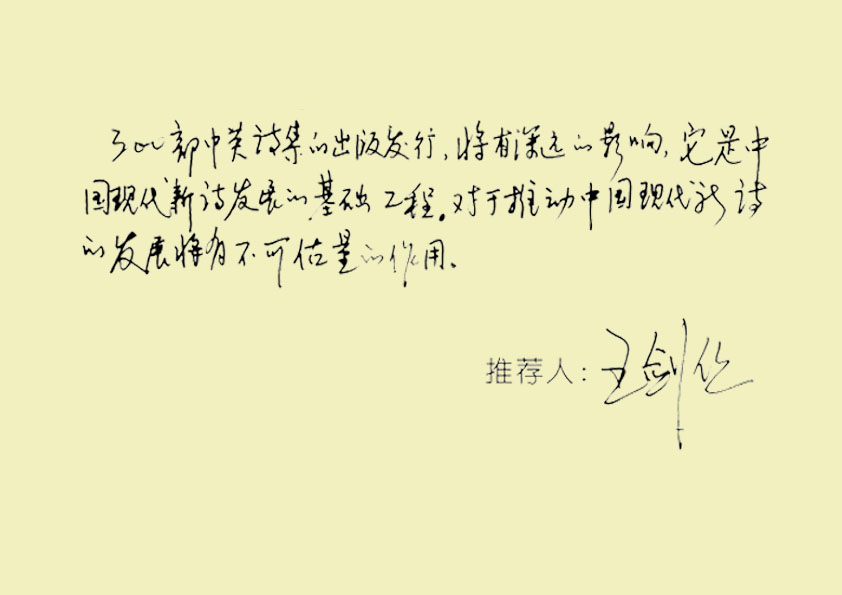 300部中英诗集的出版发行，将有深远的影响，它是中
国现代新诗发展的基础工程。对于推动中国现代新诗
的发展将有不可估量的作用。
推荐人：王剑